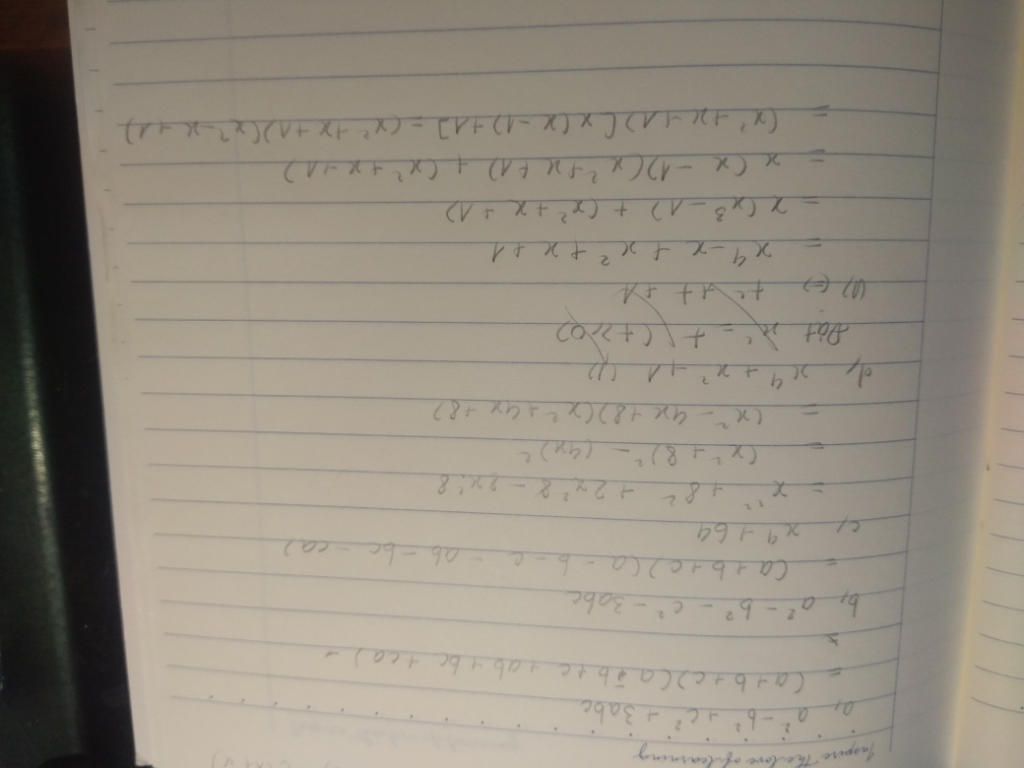 Inspire the love of learning
a, a² - b² + c² + 3abc
= (a+b+c)(a-b+c+ab+bc+ca)
b, a² - b² - c² - 3abc
= (a+b+c)(a-b-c-ab-bc-ca)
c, x⁴ + 64
= x²² + 8² + 2x²8 - 2x²8
= (x²+8)² - (4x)²
= (x² - 4x + 8)(x² + 4x + 8)
d, x⁴ + x² + 1 (1)
Đặt x² = t (t ≥ 0)
(1) (=) t² + t + 1
= x⁴ - x + x² + x + 1
= x(x³ - 1) + (x² + x + 1)
= x(x-1)(x² + x + 1) + (x² + x + 1)
= (x² + x + 1)[x(x-1)+1] = (x² + x + 1)(x² - x + 1)